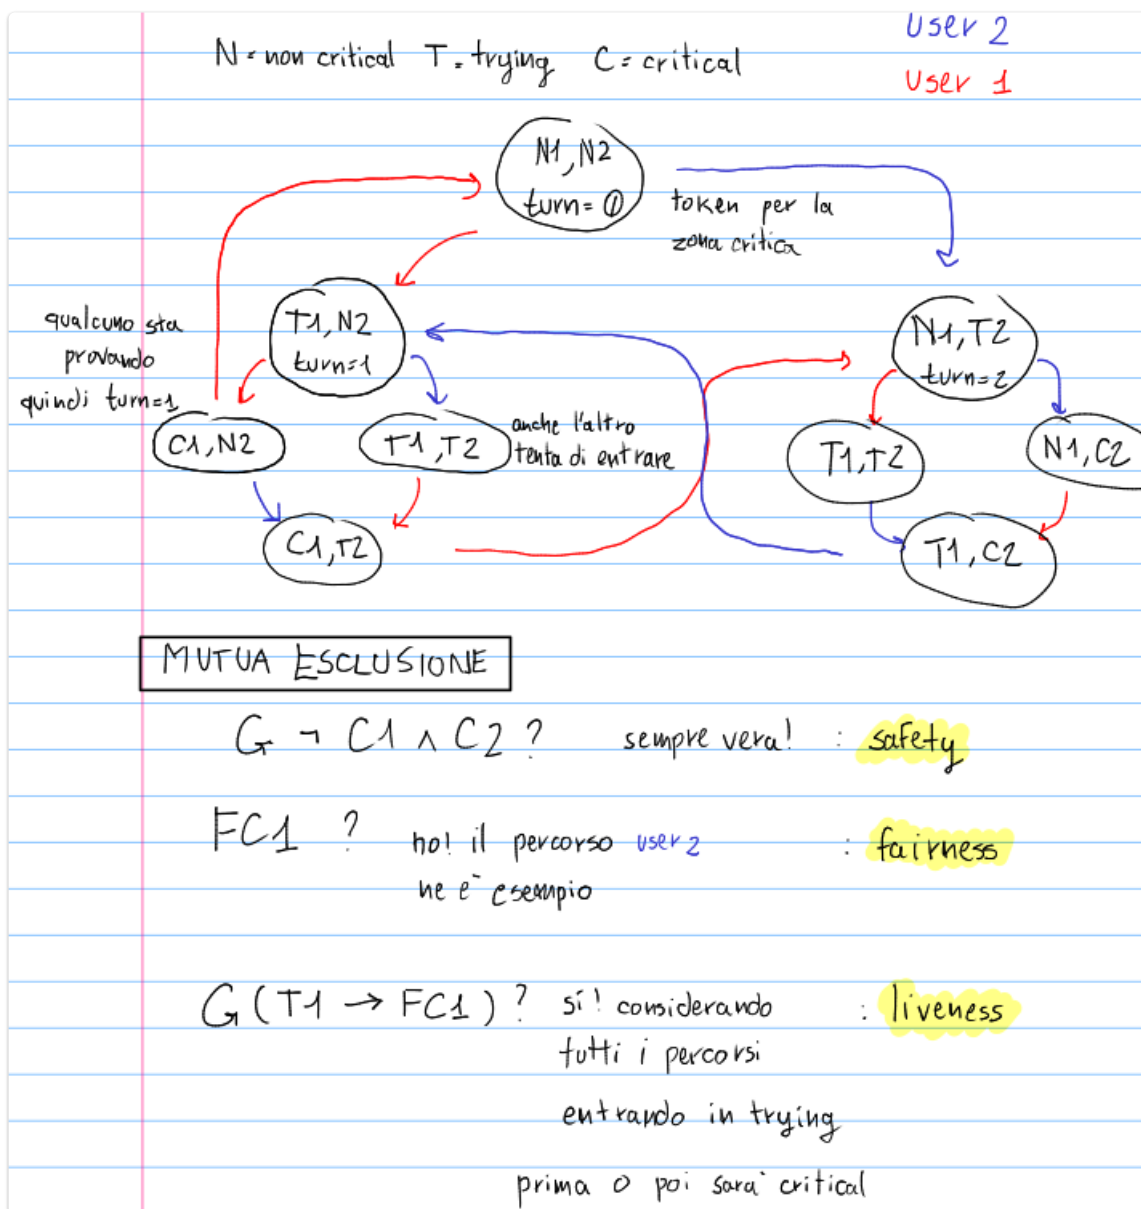 user 2
N = non critical T = trying C = critical
user 1
N1, N2
turn = 0
token per la
zona critica
qualcuno sta
provando
quindi turn=1
T1, N2
turn=1
N1, T2
turn=2
C1, N2
T1, T2
anche l'altro
tenta di entrare
T1, T2
N1, C2
C1, T2
T1, C2
MUTUA ESCLUSIONE
G ¬ C1 ∧ C2 ? sempre vera! : safety
FC1 ? no! il percorso user 2 : fairness
ne è esempio
G (T1 → FC1) ? sí! considerando : liveness
tutti i percorsi
entrando in trying
prima o poi sarà critical